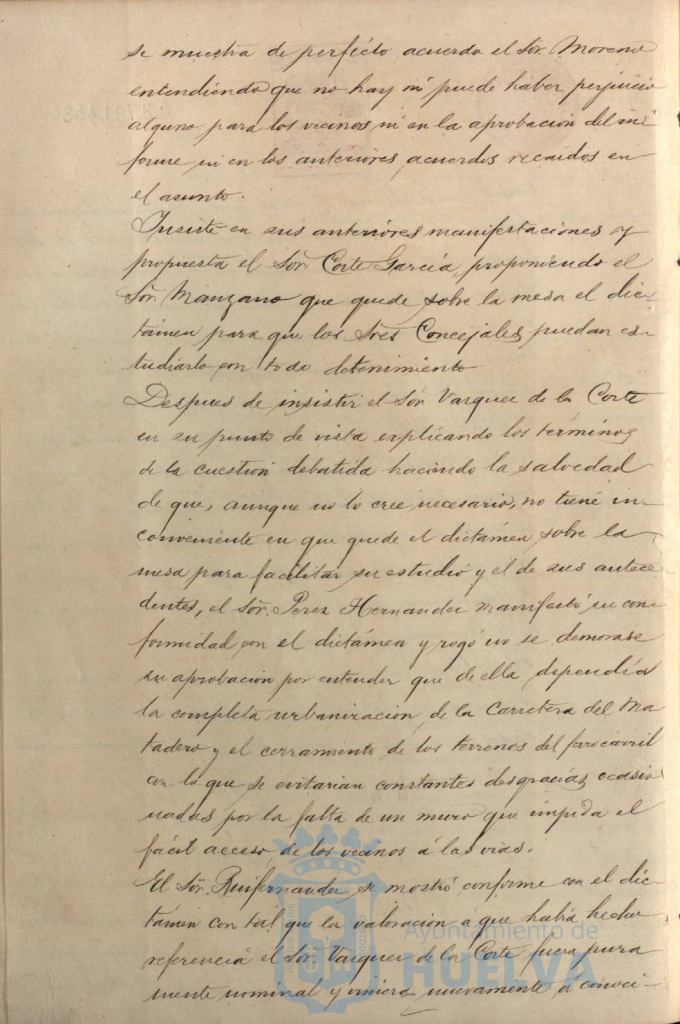 se muestra de perfecto acuerdo el Sor. Moreno
entendiendo que no hay ni puede haber perjuicio
alguno para los vecinos ni en la aprobación del in-
forme ni en los anteriores acuerdos recaidos en
el asunto.
Insiste en sus anteriores manifestaciones y
propuesta el Sor. Corte García, proponiendo el
Sor. Manzano que quede sobre la mesa el dic-
támen para que los Sres Concejales puedan es-
tudiarlo con todo detenimiento
Despues de insistir el Sor. Vazquez de la Corte
en su punto de vista explicando los términos
de la cuestión debatida haciendo la salvedad
de que, aunque no lo cree necesario, no tiene in-
conveniente en que quede el dictámen sobre la
mesa para facilitar su estudio y el de sus antece-
dentes, el Sor. Perez Hernandez manifestó su con-
formidad con el dictámen y rogó no se demorase
su aprobación por entender que de ella dependía
la completa urbanizacion de la Carretera del Ma-
tadero y el cerramiento de los terrenos del ferrocarril
con lo que se evitarian constantes desgracias ocasio-
nadas por la falta de un muro que impida el
fácil acceso de los vecinos á las vias.
El Sor. Ruifernandez se mostró conforme con el dic-
tamen con tal que la valoración a que habia hecho
referencia el Sor Vazquez de la Corte fuera pura-
mente nominal y viniera nuevamente a conoci-
Ayuntamiento de
HUELVA